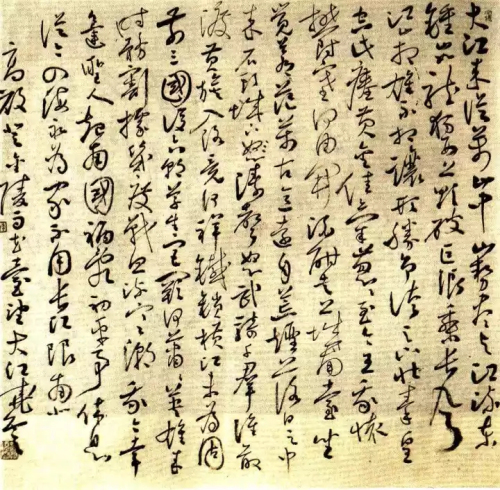 大江來從萬山中山勢盡與江流東
鍾山如龍獨西上欲破巨浪乘長風
江山相雄不相讓形勝爭誇天下壯秦皇
空此瘞黃金佳氣蔥蔥至今王我懷
鬱塞何由開酒酣走上城南臺坐
覺蒼茫萬古意遠自荒煙落日之中
來石頭城下濤聲怒武騎千群誰敢
渡黃旗入洛竟何祥鐵鎖橫江未為固
前三國後六朝草生宮闕何蕭蕭英雄來
時務割據幾度戰血流寒潮我今幸
逢聖人起南國禍亂初平事休息
從今四海永為家不用長江限南北
高啟登金陵雨花臺望大江